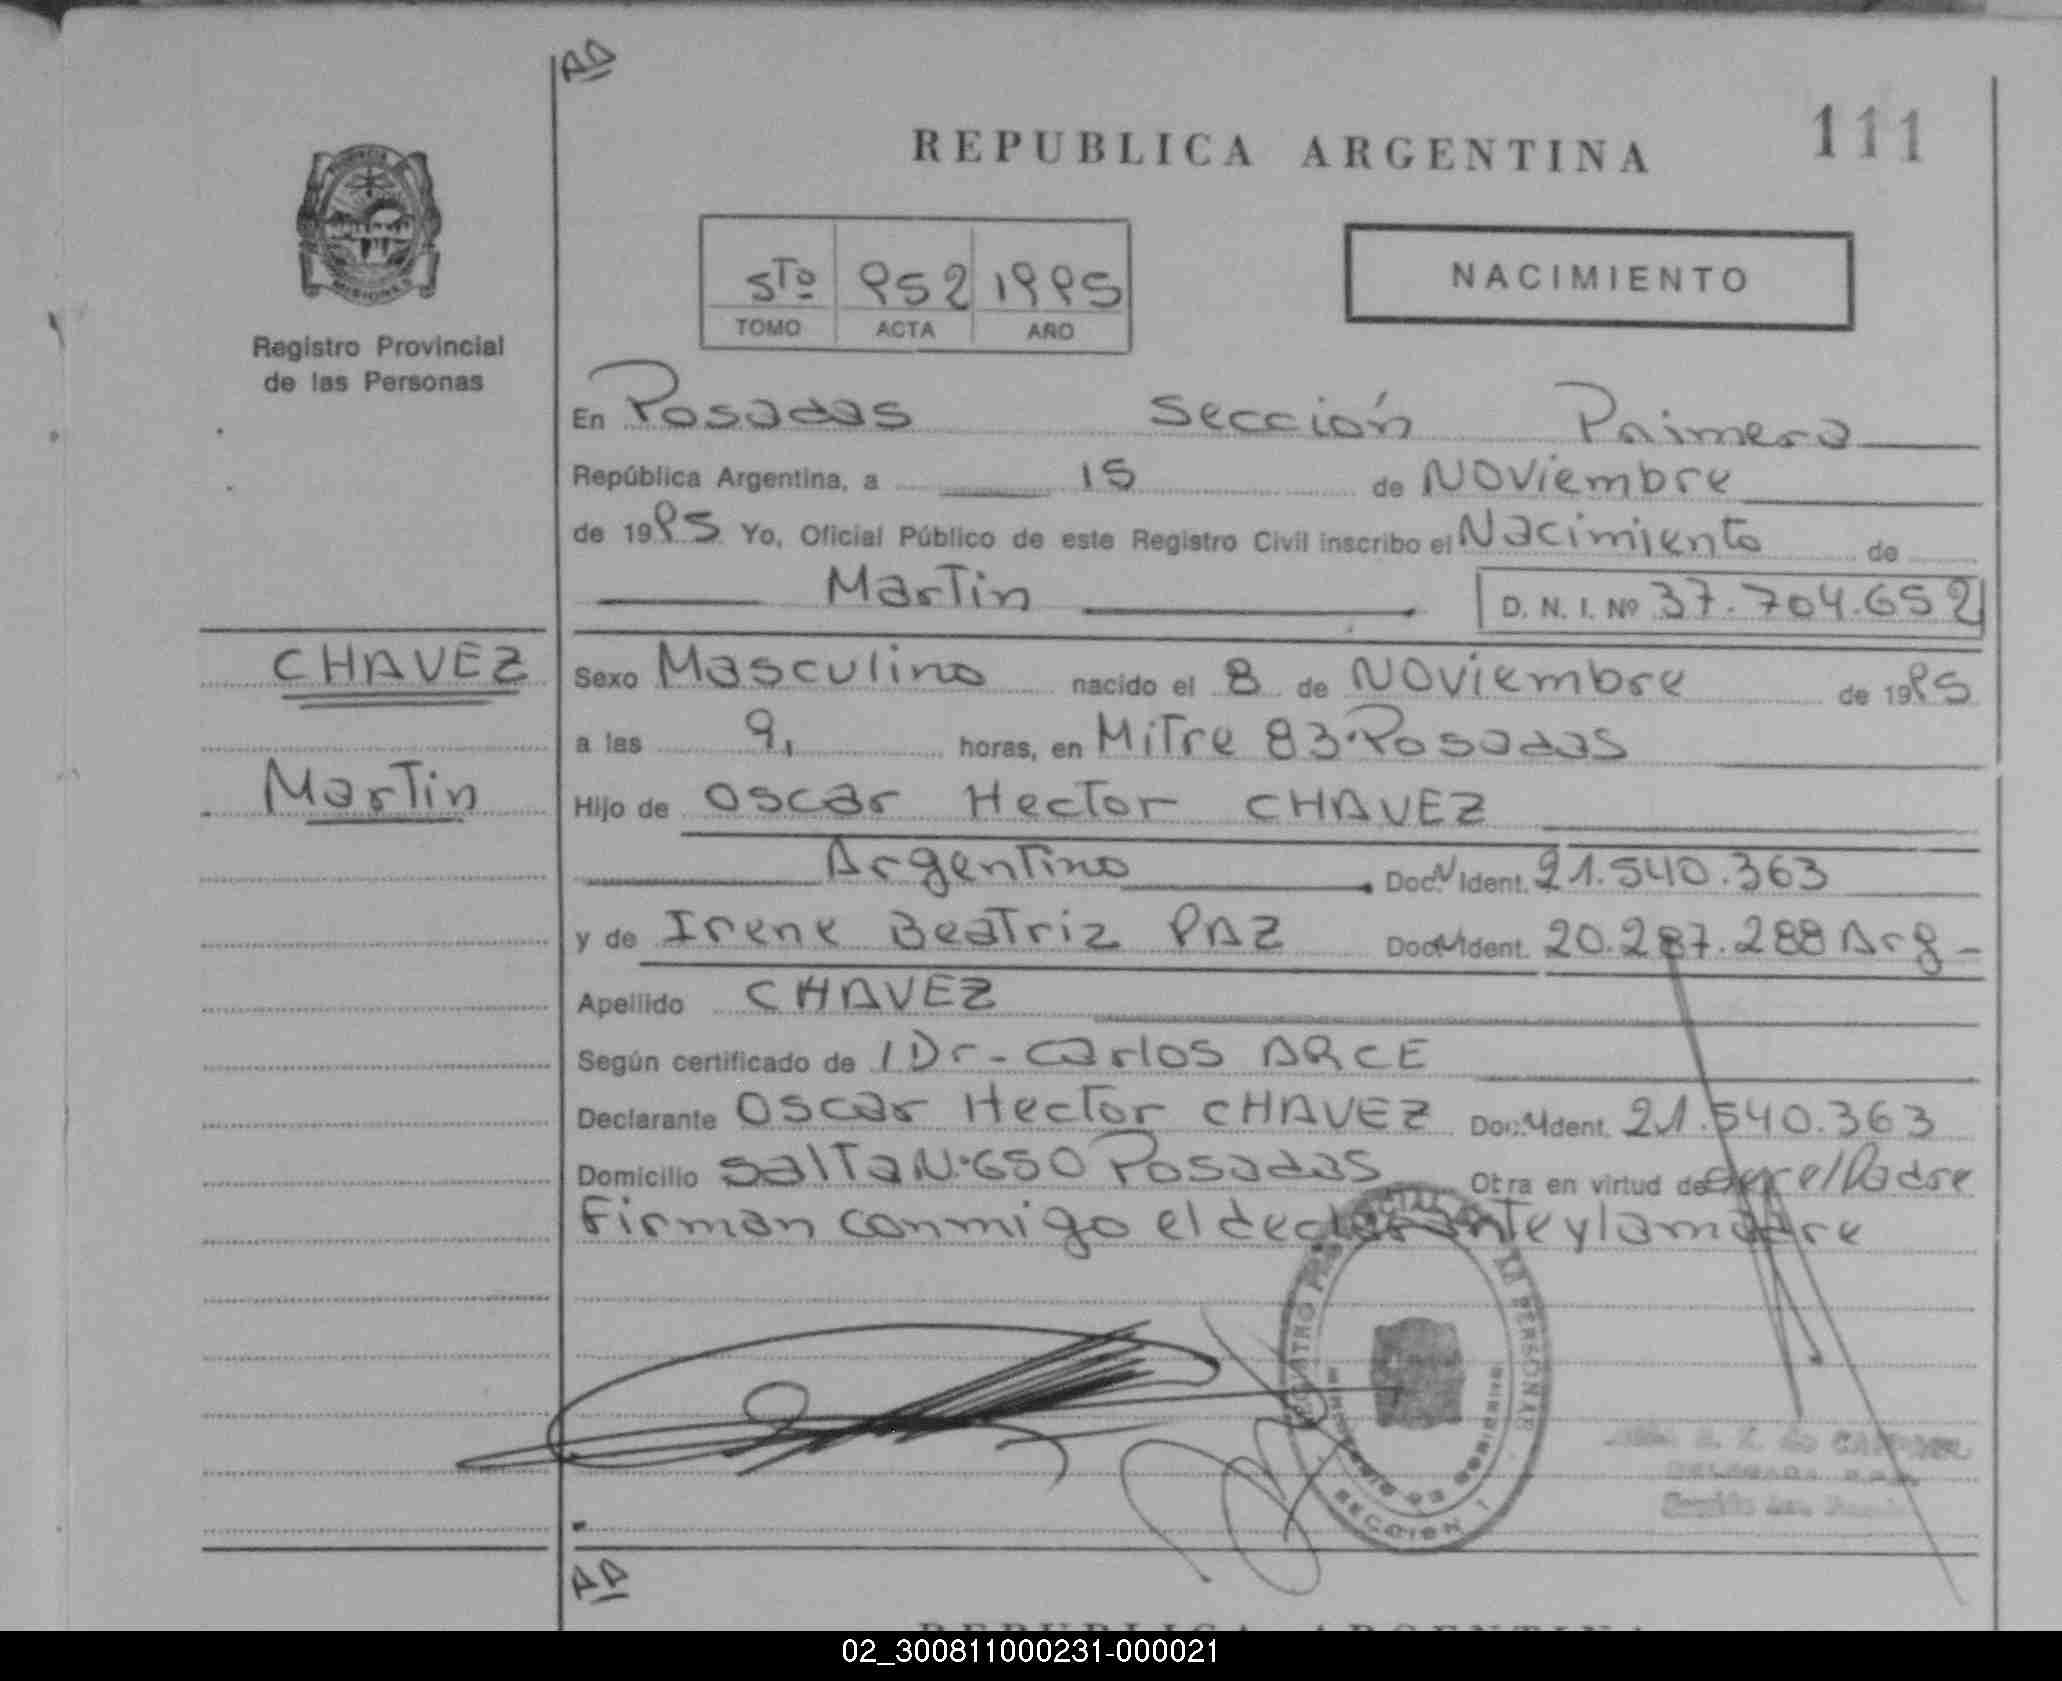 AD
REPUBLICA ARGENTINA
111
PROVINCIA
MISIONES
Registro Provincial
de las Personas
5To 952 1995
TOMO ACTA AÑO
NACIMIENTO
En Posadas Sección Primera
República Argentina, a 15 de Noviembre
de 1995 Yo, Oficial Público de este Registro Civil inscribo el Nacimiento de
Martin D. N. I. Nº 37.704.652
CHAVEZ
Martin
Sexo Masculino nacido el 8 de Noviembre de 1995
a las 9, horas, en Mitre 83·Posadas
Hijo de Oscar Hector CHAVEZ
Argentino Doc. Ident. 21.540.363
y de Irene Beatriz PAZ Doc. Ident. 20.287.288 Arg-
Apellido CHAVEZ
Según certificado de 1 Dr- Carlos ARCE
Declarante Oscar Hector CHAVEZ Doc. Ident. 21.540.363
Domicilio Salta N·650 Posadas Otra en virtud de ser el Padre
Firman conmigo el declarante y la madre
SECCION 1
AD
REPUBLICA ARGENTINA
02_300811000231-000021